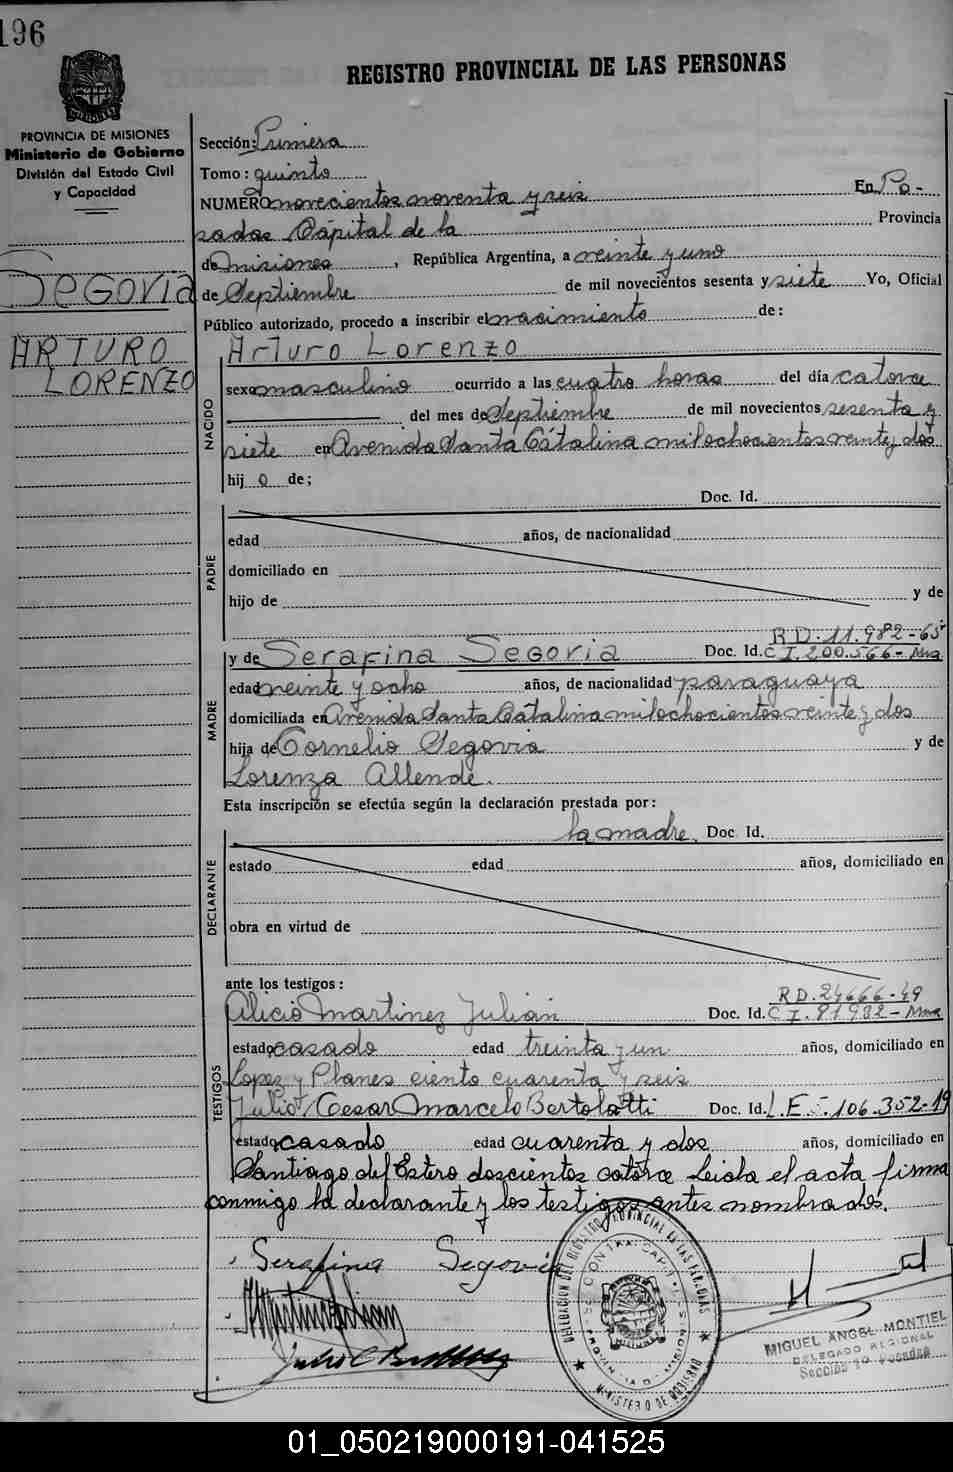 196
REGISTRO PROVINCIAL DE LAS PERSONAS
PROVINCIA DE MISIONES
Ministerio de Gobierno
División del Estado Civil
y Capacidad
SEGOVIA
ARTURO
LORENZO
Sección: Primera
Tomo: quinto
NUMERO novecientos noventa y seis En Po-
sadas Cápital de la Provincia
de misiones, República Argentina, a veinte y uno
de Septiembre de mil novecientos sesenta y siete Yo, Oficial
Público autorizado, procedo a inscribir el nacimiento de:
NACIDO
Arturo Lorenzo
sexo masculino ocurrido a las cuatro horas del día catorce
del mes de Septiembre de mil novecientos sesenta y
siete en Avenida Santa Cátalina milochocientos veinte y dos
hij o de;
Doc. Id.
PADRE
edad años, de nacionalidad
domiciliado en
hijo de y de
RD. 11.982-65
y de SERAFINA SEGOVIA Doc. Id. C I. 200.566- Mna
MADRE
edad veinte y ocho años, de nacionalidad paraguaya
domiciliada en Avenida Santa Catalina milochocientos veinte y dos
hija de Cornelio Segovia y de
Lorenza Allende.
Esta inscripción se efectúa según la declaración prestada por:
la madre. Doc. Id.
DECLARANTE
estado edad años, domiciliado en
obra en virtud de
ante los testigos:
RD. 24666-49
Alicio Martinez Julian Doc. Id. C I. 81982- Mna
TESTIGOS
estado casado edad treinta y un años, domiciliado en
Lopez y Planes ciento cuarenta y seis
Julio Cesar Marcelo Bertolotti Doc. Id. L.E 5.106.352-19
estado casado edad cuarenta y dos años, domiciliado en
Santiago del Estero doscientos catorce Leida el acta firma
conmigo la declarante y los testigos antes nombrados.
Serafina Segovia
MIGUEL ANGEL MONTIEL
DELEGADO REGIONAL
Sección 1a Posadas
MINISTERIO DE GOBIERNO
01_050219000191-041525